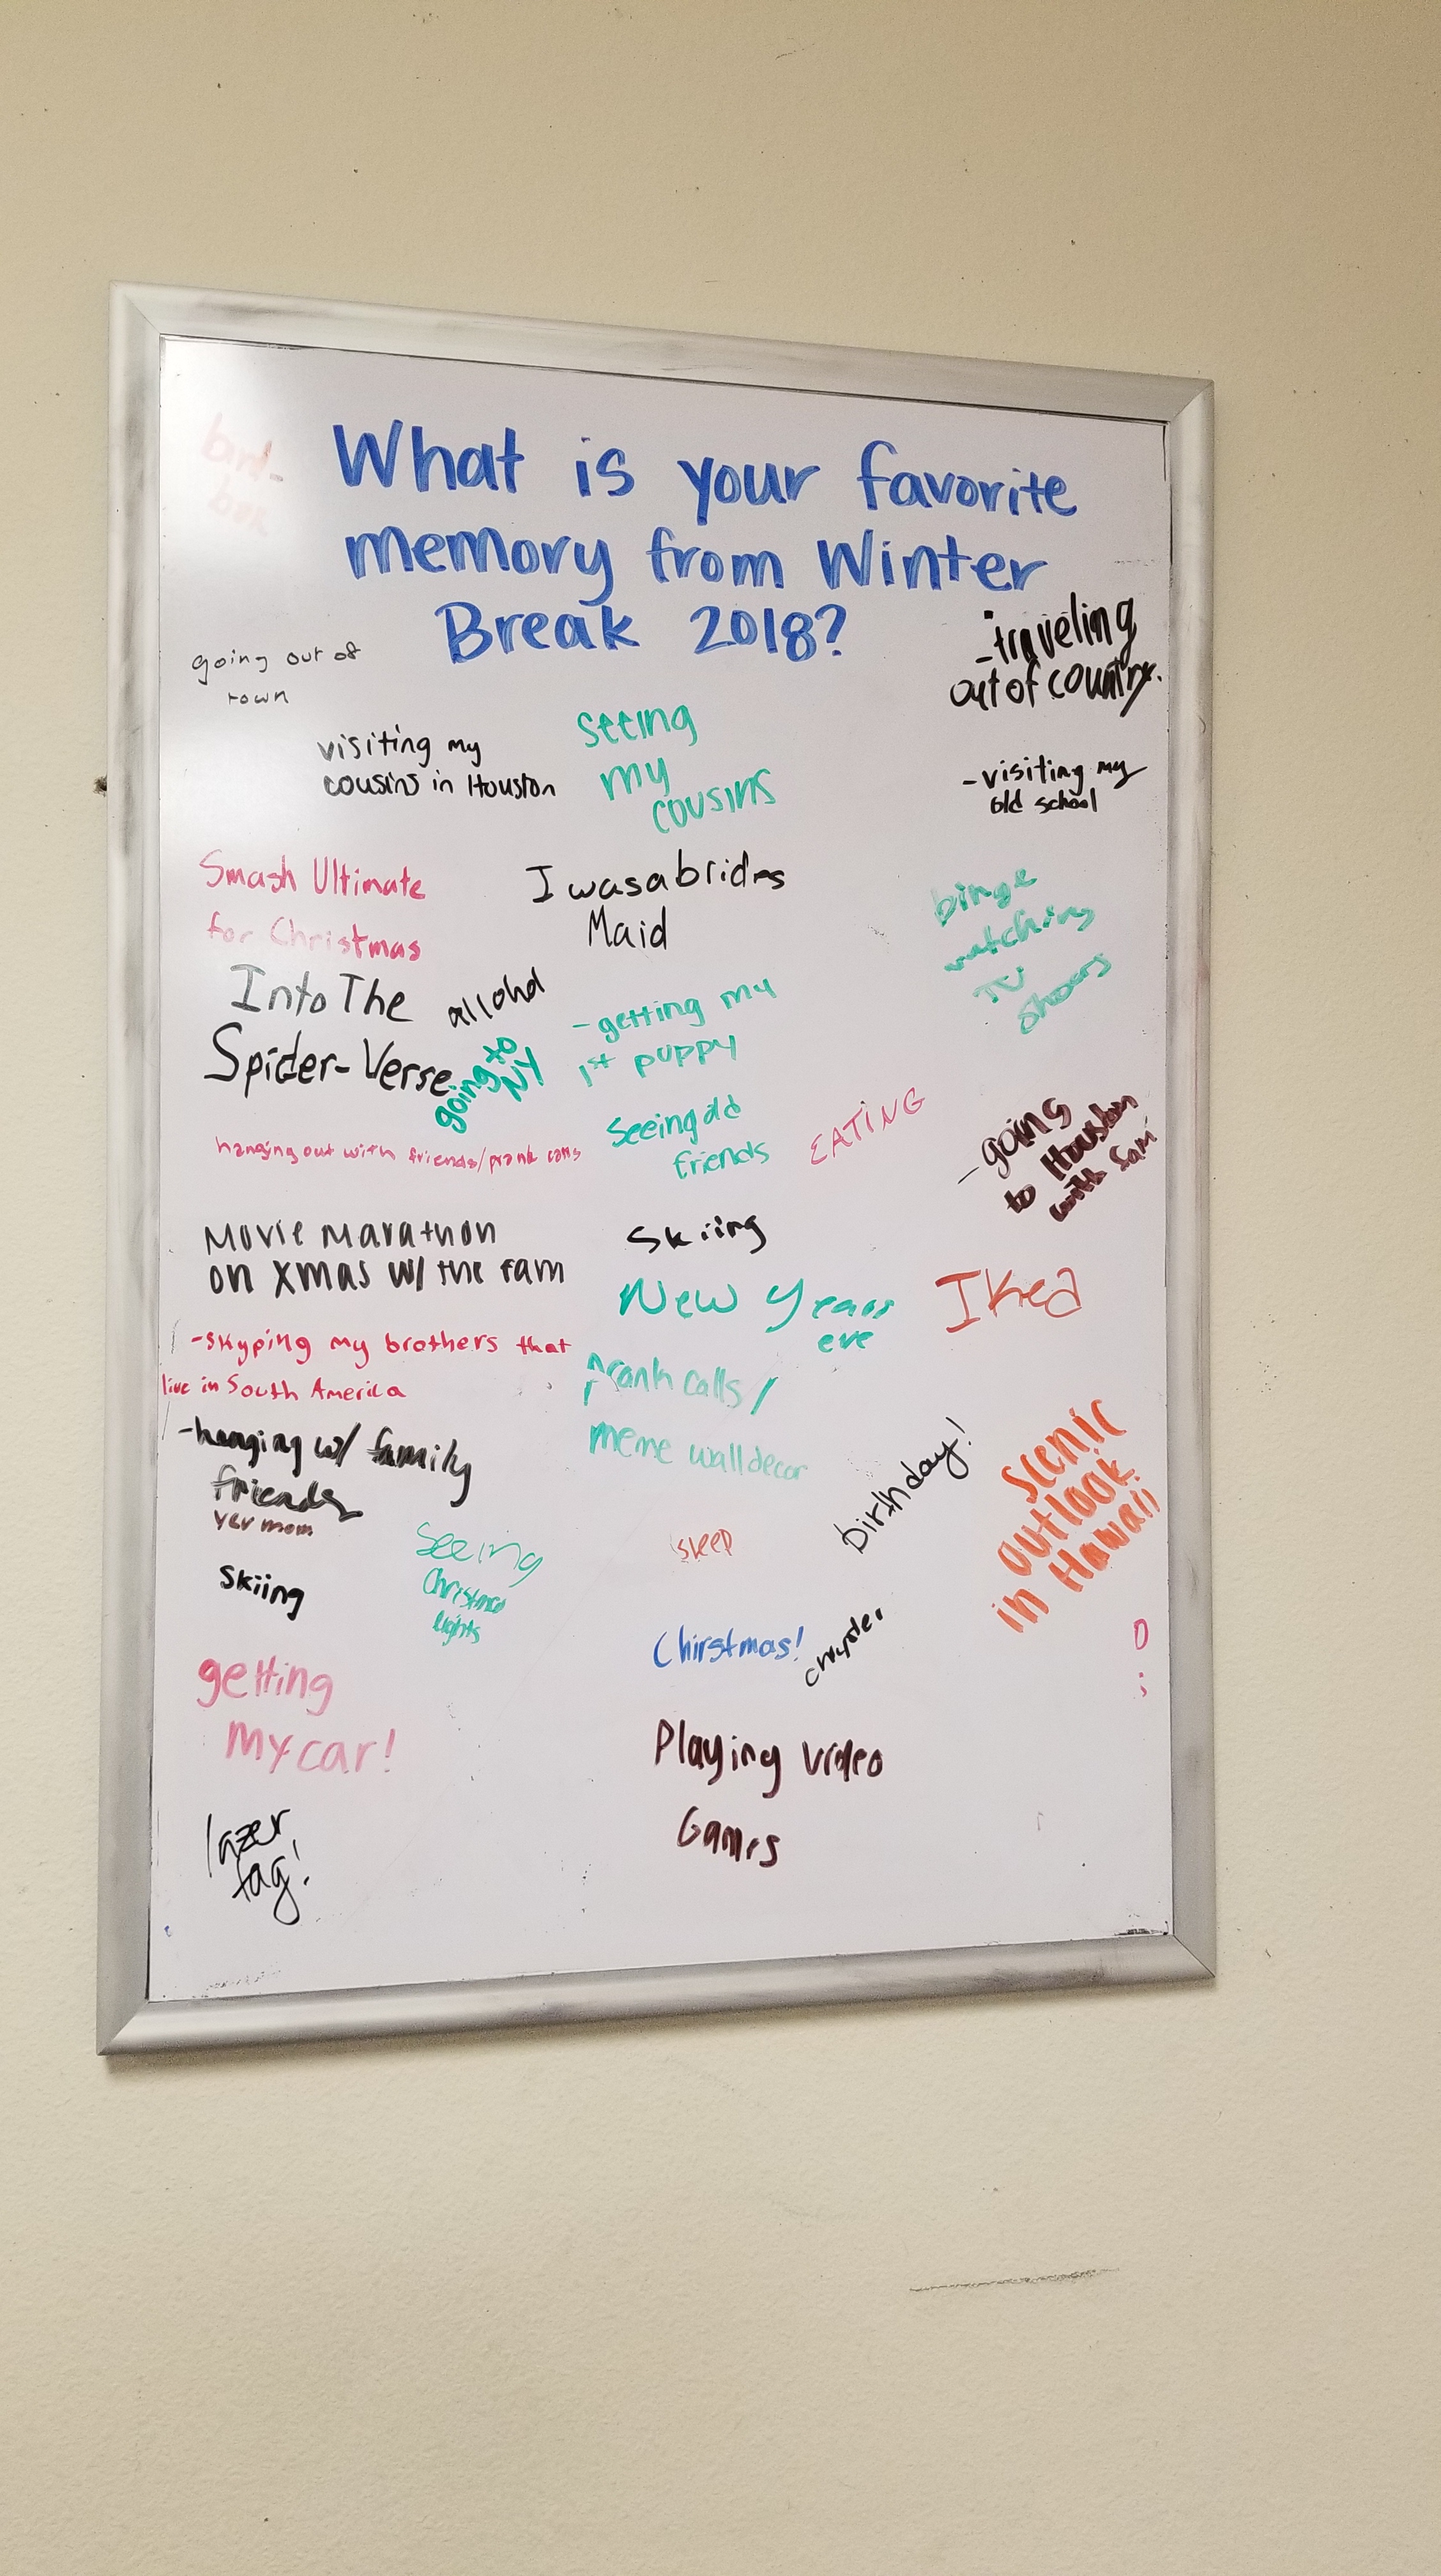 What is your favorite
memory from Winter
Break 2018?
bird-
box
going out of
town
-traveling
out of country.
visiting my
cousins in Houston
seeing
my
cousins
-visiting my
old school
Smash Ultimate
for Christmas
I was a brides
Maid
binge
watching
TV
shows
Into The
Spider-Verse
going to
NY
-getting my
1st puppy
hanging out with friends/prank calls
Seeing old
friends
EATING
-going
to Houston
with Sam
Movie Marathon
on xmas w/ the fam
Skiing
New Years
eve
Ikea
-skyping my brothers that
live in South America
prank calls/
meme wall decor
-hanging w/ family
friends
yer mom
birthday!
scenic
outlook
in Hawaii
Skiing
Seeing
Christmas
lights
sleep
Chirstmas!
getting
my car!
Playing video
Games
lazer
tag!